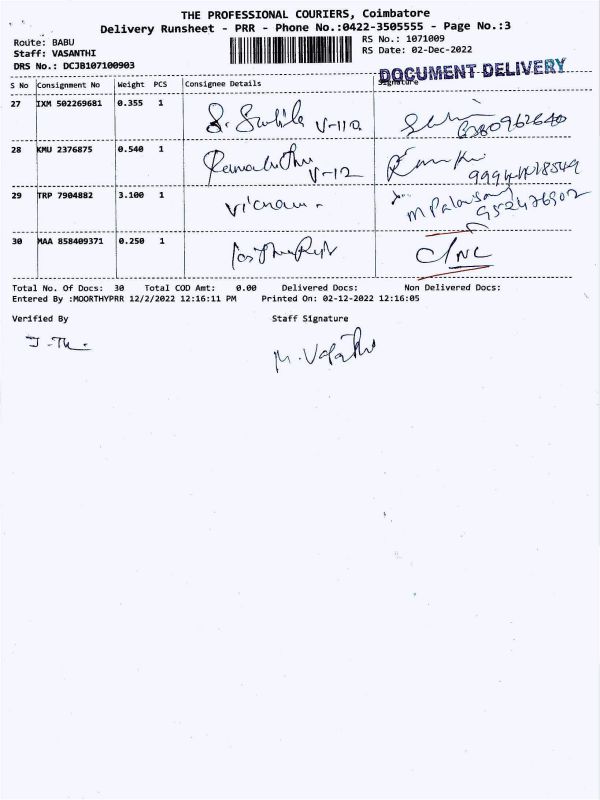 THE PROFESSIONAL COURIERS, Coimbatore
Delivery Runsheet - PRR - Phone No.:0422-3505555 - Page No.:3
Route: BABU
Staff: VASANTHI
DRS No.: DCJB107100903
RS No.: 1071009
RS Date: 02-Dec-2022
DOCUMENT DELIVERY
S No Consignment No Weight PCS Consignee Details Signature
27 IXM 502269681 0.355 1 V-110
28 KMU 2376875 0.540 1 V-12
29 TRP 7904882 3.100 1 M Palan
30 MAA 858409371 0.250 1 C/NC
Total No. Of Docs: 30 Total COD Amt: 0.00 Delivered Docs: Non Delivered Docs:
Entered By :MOORTHYPRR 12/2/2022 12:16:11 PM Printed On: 02-12-2022 12:16:05
Verified By Staff Signature